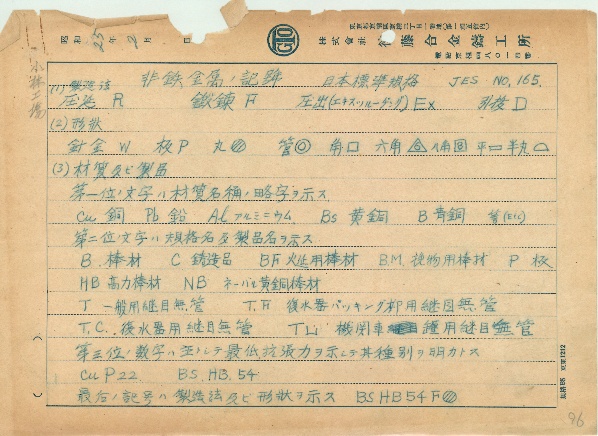 昭和 25年 2月 日
GTO
株式会社 後藤合金鋳工所
非鉄金属ノ記号 日本標準規格 JES NO,165.
(1) 製造法
圧延 R 鍛錬 F 圧出(エキストルーヂング) Ex 引抜 D
(2) 形状
針金 W 板 P 丸 管 ◎ 角 □ 六角 角 平 ▭ 半丸
(3) 材質及ビ製品
第一位ノ文字ハ材質名称ノ略字ヲ示ス
Cu 銅 Pb 鉛 Al アルミニウム Bs 黄銅 B 青銅 等(Etc)
第二位ノ文字ハ規格名及製品名ヲ示ス
B. 棒材 C 鋳造品 BF 火造用棒材 B.M. 挽物用棒材 P 板
HB 高力棒材 NB ネーバル黄銅棒材
T 一般用継目無管 T.F. 復水器パッキング押用継目無管
T.C. 復水器用継目無管 TL 機関車 用継目無管
第三位ノ数字ハ主トシテ最低抗張力ヲ示シテ其種別ヲ明カトス
Cu P 22. BS. HB. 54
最后ノ記号ハ製造法及ビ形状ヲ示ス BS HB 54 F
96